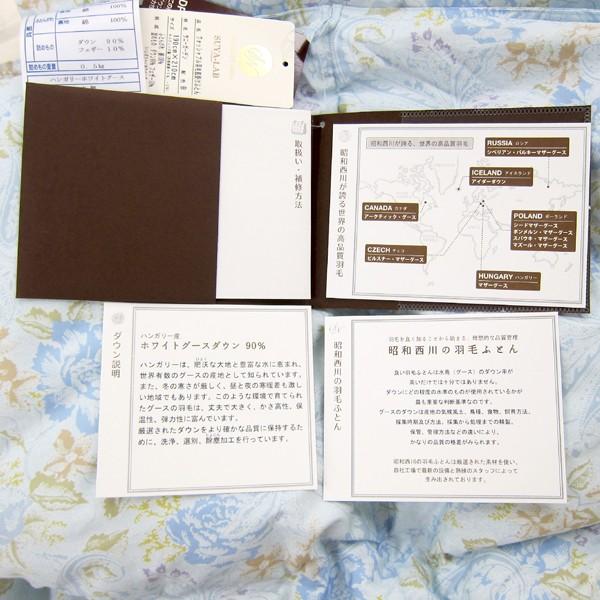 綿 100%
綿 100%
詰めもの
ダウン 90%
フェザー 10%
詰めもの重量
0.5kg
ハンガリーホワイトグース
SUYA-LAB
190cm×210cm
取扱い・補修方法
昭和西川が誇る世界の高品質羽毛
昭和西川が誇る、世界の高品質羽毛
RUSSIA ロシア
シベリアン・パルキーマザーグース
ICELAND アイスランド
アイダーダウン
CANADA カナダ
アークティック・グース
POLAND ポーランド
シードマザーグース
ポンメルン・マザーグース
スバウキ・マザーグース
マズール・マザーグース
CZECH チェコ
ピルスナー・マザーグース
HUNGARY ハンガリー
マザーグース
ダウン説明
ハンガリー産
ホワイトグースダウン 90%
ハンガリーは、肥沃な大地と豊富な水に恵まれ、
世界有数のグースの産地として知られています。
また、冬の寒さが厳しく、昼と夜の寒暖差も激し
い地域でもあります。このような環境で育てられ
たグースの羽毛は、丈夫で大きく、かさ高性、保
温性、弾力性に富んでいます。
厳選されたダウンをより確かな品質に保持するた
めに、洗浄、選別、除塵加工を行っています。
昭和西川の羽毛ふとん
羽毛を良く知ることから始まる、理想的な品質管理
昭和西川の羽毛ふとん
良い羽毛ふとんは水鳥(グース)のダウン率が
高いだけでは十分ではありません。
ダウンにどの程度の水準のものが使用されているかが
最も重要な判断基準なのです。
グースのダウンは産地の気候風土、鳥種、食物、飼育方法、
採集時期及び方法、採集から処理までの精製、
保管、管理方法などの違いにより、
かなりの品質の格差がみられます。
昭和西川の羽毛ふとんは厳選された素材を使い、
自社工場で最新の設備と熟練のスタッフによって
生み出されております。